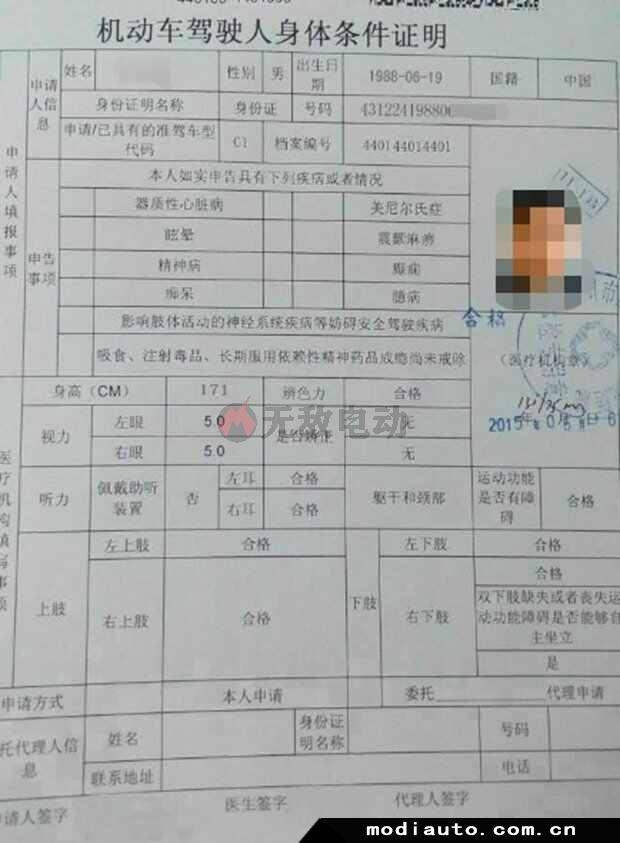 机动车驾驶人身体条件证明
申请人填报事项
申请人信息
姓名
性别 男
出生日期
1988-06-19
国籍 中国
身份证明名称
身份证 号码
43122419880
申请/已具有的准驾车型代码
C1
档案编号
440144014401
申告事项
本人如实申告具有下列疾病或者情况
器质性心脏病 美尼尔氏症
眩晕 震颤麻痹
精神病 癫痫
痴呆 癔病
影响肢体活动的神经系统疾病等妨碍安全驾驶疾病
吸食、注射毒品、长期服用依赖性精神药品成瘾尚未戒除
合格
(医疗机构章)
医疗机构填写事项
身高(CM) 171 辨色力 合格
视力
左眼 5.0
是否矫正
无
右眼 5.0
无
无敌电动
2015年
听力
佩戴助听装置
否
左耳 合格
右耳 合格
躯干和颈部
运动功能是否有障碍
合格
上肢
左上肢 合格
右上肢 合格
下肢
左下肢 合格
右下肢
合格
双下肢缺失或者丧失运动功能障碍是否能够自主坐立
是
申请方式
本人申请
委托 代理申请
托代理人信息
姓名
身份证明名称
号码
联系地址
电话
请人签字 医生签字 代理人签字
www.modiauto.com.cn